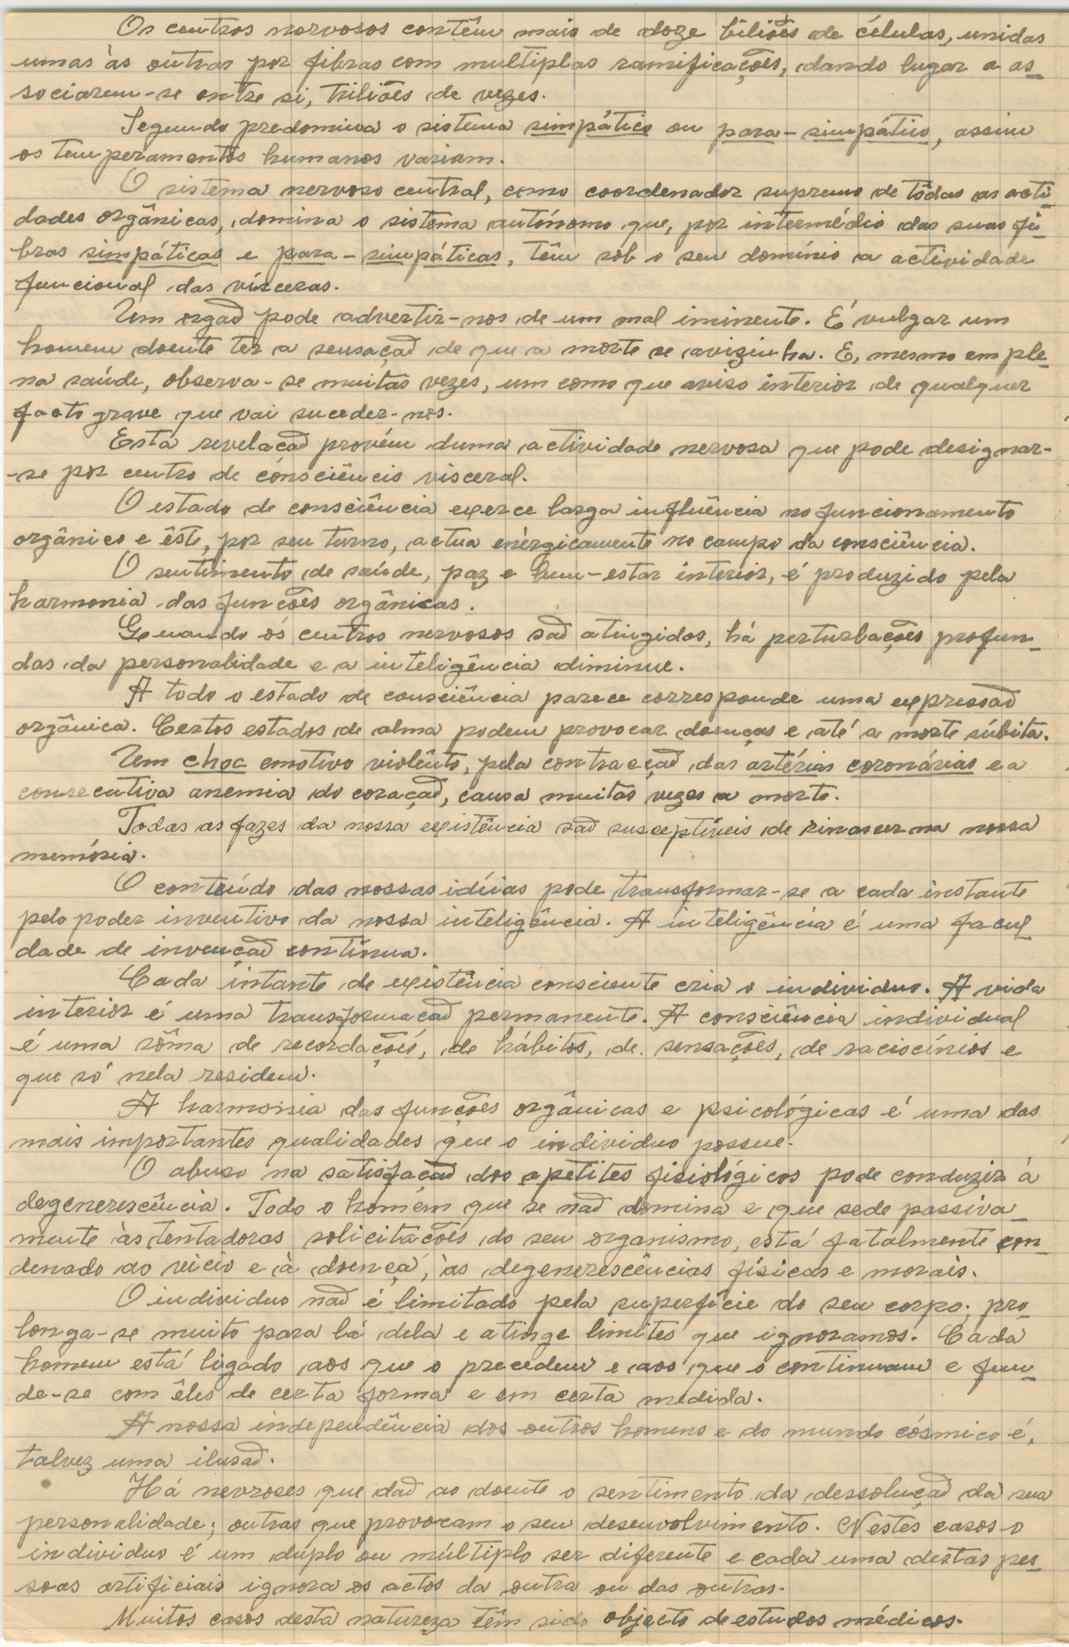 Os centros nervosos contêm mais de doze biliões de células, unidas
umas às outras por fibras com multiplas ramificações, dando lugar a as_
sociarem-se entre si, triliões de vezes.
Segundo predomina o sistema simpático ou para-simpático, assim
os temperamentos humanos variam.
O sistema nervoso central, como coordenador supremo de tôdas as acti_
dades orgânicas, domina o sistema autónomo que, por intermédio das suas fi_
bras simpáticas e para-simpáticas, têm sob o seu domínio a actividade
funcional das vísceras.
Um orgaõ pode advertir-nos de um mal iminente. É vulgar um
homem doente ter a sensaçaõ de que a morte se avizinha. E, mesmo em ple_
na saúde, observa-se muitas vezes, um como que aviso interior de qualquer
facto grave que vai suceder-nos.
Esta revelaçaõ provém duma actividade nervosa que pode designar-
-se por centro de consciência visceral.
O estado de consciência exerce larga influência no funcionamento
orgânico e êste, por seu turno, actua enérgicamente no campo da consciência.
O sentimento de saúde, paz e bem-estar interior, é produzido pela
harmonia das funções orgânicas.
Quando os centros nervosos saõ atingidos, há perturbações profun_
das da personalidade e a inteligência diminue.
A todo o estado de consciência parece corresponde uma expressaõ
orgânica. Certos estados de alma podem provocar doenças e até a morte súbita.
Um choc emotivo violento, pela contracçaõ das artérias coronárias e a
consecutiva anemia do coraçaõ, causa muitas vezes a morte.
Todas as fazes da nossa existência saõ susceptíveis de rinascer na nossa
memória.
O conteúdo das nossas idéias pode transformar-se a cada instante
pelo poder inventivo da nossa inteligência. A inteligência é uma facul_
dade de invençaõ contínua.
Cada intante de existência consciente cria o individuo. A vida
interior é uma transformaçaõ permanente. A consciência individual
é uma sôma de recordações, de hábitos, de sensações, de raciocínios e
que só nela residem.
A harmonia das funções orgânicas e psicológicas é uma das
mais importantes qualidades que o individuo possue.
O abuso na satisfaçaõ dos apetites fisiológicos pode conduzir à
degenerescência. Todo o homem que se naõ domina e que sede passiva_
mente às tentadoras solicitações do seu organismo, está fatalmente con_
denado ao vicio e à doença, às degenerescências físicas e morais.
O individuo naõ é limitado pela superfície do seu corpo; pro_
longa-se muito para lá dela e atinge limites que ignoramos. Cada
homem está ligado aos que o precedem e aos que o continuam e fun_
de-se com êles de certa forma e em certa medida.
A nossa independência dos outros homens e do mundo cósmico é,
talvez uma ilusaõ.
Há nevroses que daõ ao doente o sentimento da dessoluçaõ da sua
personalidade; outras que provocam o seu desenvolvimento. Nestes casos o
individuo é um duplo ou múltiplo ser diferente e cada uma destas pes_
soas artificiais ignora os actos da outra ou das outras.
Muitos casos desta natureza têm sido objecto de estudos médicos.